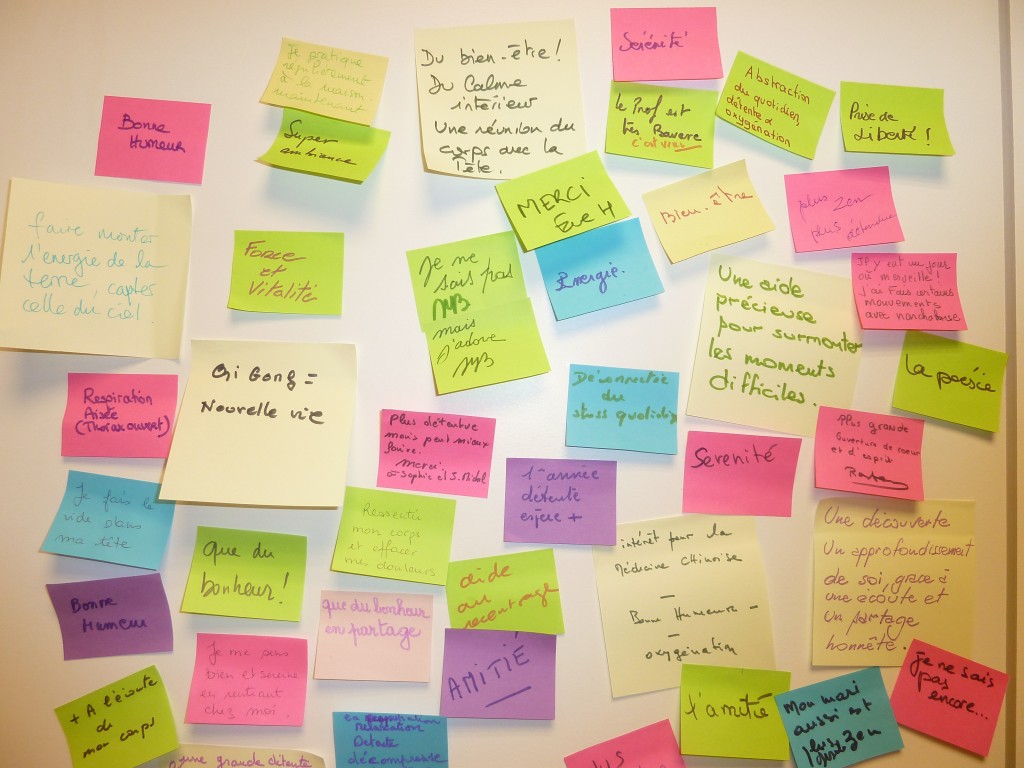 Je pratique
régulièrement
à la maison
maintenant
Super
ambiance
Bonne
Humeur
Du bien-être!
Du Calme
intérieur
Une réunion du
corps avec la
Tête.
Sérénité
le Prof est
très
c'est vrai
Abstraction
du quotidien,
détente &
oxygénation
Prise de
Liberté!
MERCI
Eve H
Bien-être
plus zen
plus détendue
faire monter
l'energie de la
terre, capter
celle du ciel.
Force
et
Vitalité
Je ne
sais pas
mais
J'adore
Energie.
Une aide
précieuse
pour surmonter
les moments
difficiles.
Il y eut un jour
où merveille!
j'ai fait certains
mouvements
avec nonchalance
la poésie
Qi Gong =
Nouvelle vie
Respiration
Aisée
(Thorax ouvert)
Plus détendue
mais peut mieux
faire.
merci
Sophie et J.
Déconnectée
du
stress quotidien
Serenité
Plus grande
Ouverture de coeur
et d'esprit
1e année
détente
espère +
Je fais le
vide dans
ma tête
que du
bonheur!
Ressentir
mon corps
et effacer
mes douleurs
aide
au
recentrage
intérêt pour la
Médecine Chinoise
—
Bonne Humeur -
—
oxygénation
Une découverte
Un approfondissement
de soi, grace à
une écoute et
un partage
honnête.
Bonne
Humeur
que du bonheur
en partage
AMITIÉ
Je me sens
bien et sereine
en rentrant
chez moi.
+ A l'écoute
de
mon corps
relaxation
Détente
décompresse
l'amitié
Mon mari
aussi est
plus zen
Je ne sais
pas
encore...
une grande détente